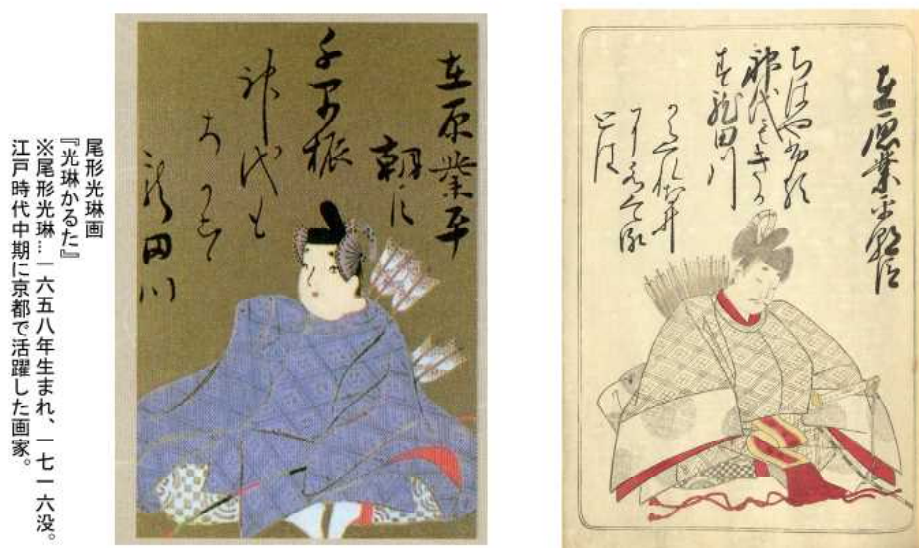 在原業平朝臣
ちはやふる
神代もきか
す龍田川
在原業平
朝臣
千早振
神代も
きかす
田川
尾形光琳画
『光琳かるた』
※尾形光琳…一六五八年生まれ、一七一六没。
江戸時代中期に京都で活躍した画家。